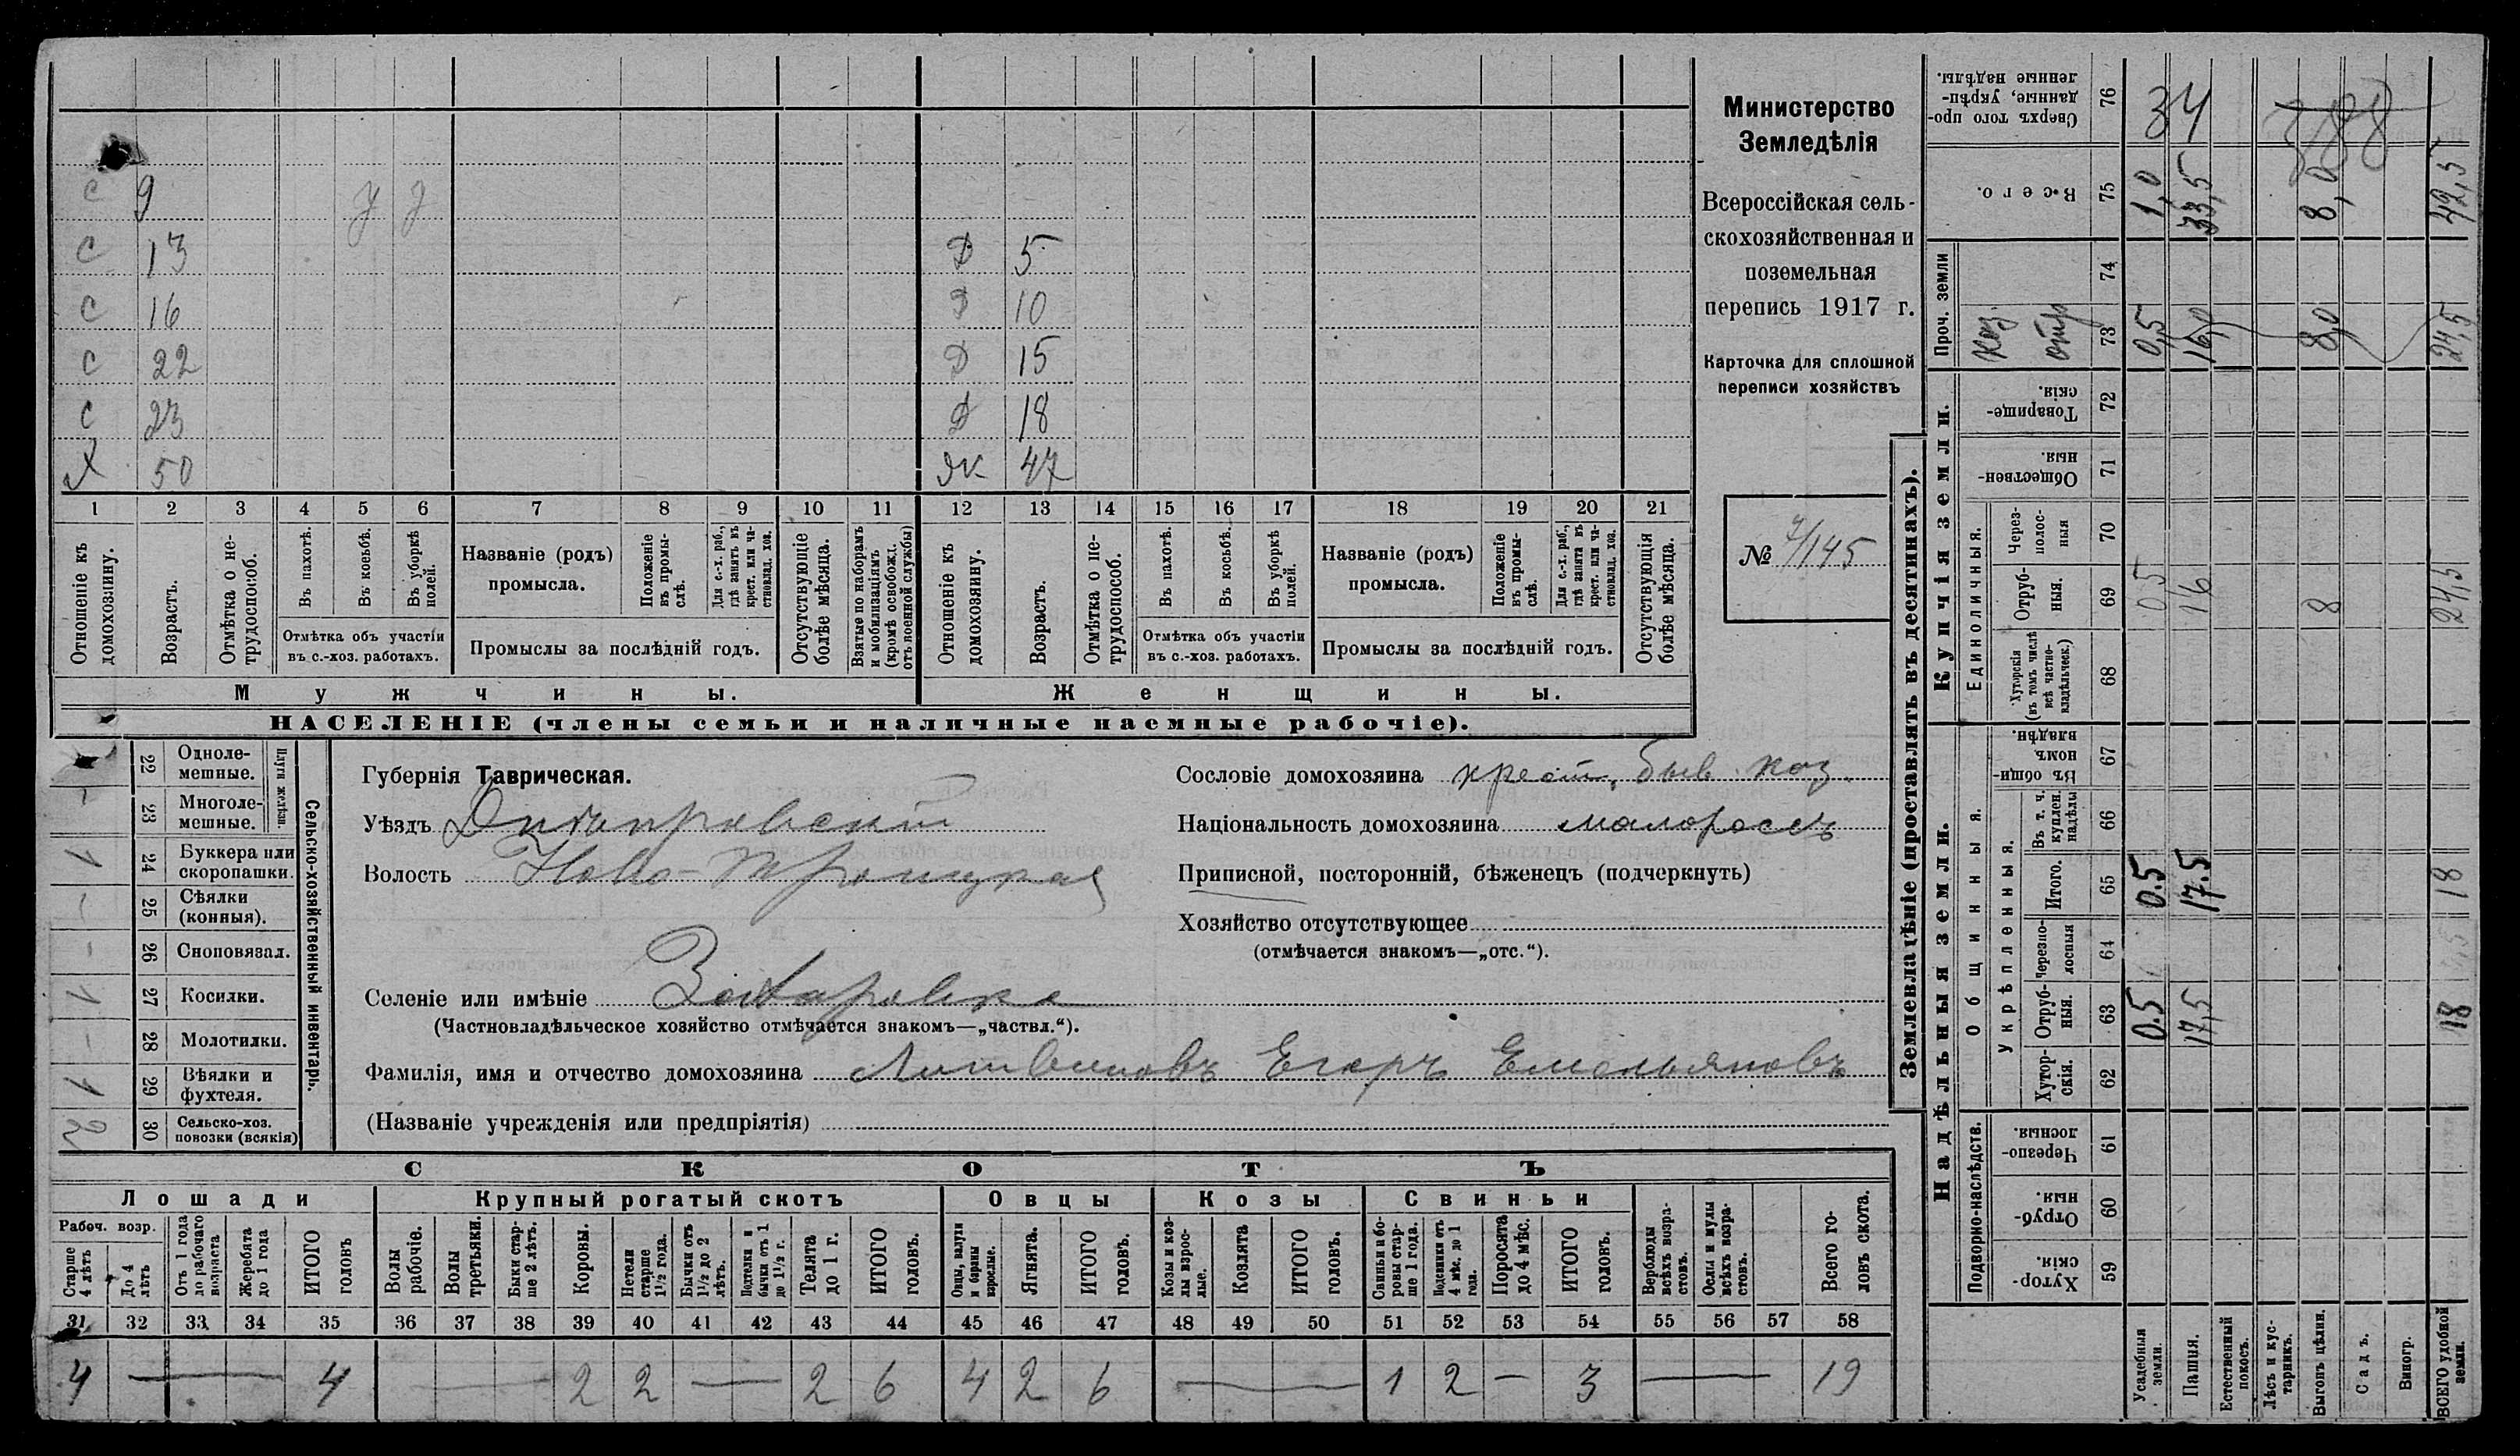 С 9 у у
С 13 Д 5
С 16 Д 10
С 22 Д 15
С 23 Д 18
Х 50 Ж 47
1 2 3 4 5 6 7 8 9 10 11 12 13 14 15 16 17 18 19 20 21
Отношеніе къ домохозяину.
Возрастъ.
Отмѣтка о нетрудоспособ.
Въ пахотѣ.
Въ косьбѣ.
Въ уборкѣ полей.
Отмѣтка объ участіи въ с.-хоз. работахъ.
Названіе (родъ) промысла.
Положеніе въ промыслѣ.
Для с.-х. раб., гдѣ занятъ въ крест. или частновлад. хоз.
Промыслы за послѣдній годъ.
Отсутствующіе болѣе мѣсяца.
Взятые по наборамъ и мобилизаціямъ (кромѣ освобожд. отъ военной службы)
Отношеніе къ домохозяину.
Возрастъ.
Отмѣтка о нетрудоспособ.
Въ пахотѣ.
Въ косьбѣ.
Въ уборкѣ полей.
Отмѣтка объ участіи въ с.-хоз. работахъ.
Названіе (родъ) промысла.
Положеніе въ промыслѣ.
Для с.-х. раб., гдѣ занята въ крест. или частновлад. хоз.
Промыслы за послѣдній годъ.
Отсутствующія болѣе мѣсяца.
Мужчины. Женщины.
НАСЕЛЕНІЕ (члены семьи и наличные наемные рабочіе).
Министерство
Земледѣлія
Всероссійская сель-
скохозяйственная и
поземельная
перепись 1917 г.
Карточка для сплошной
переписи хозяйствъ
№ 4/145
Сельско-хозяйственный инвентарь.
Плуги желѣзн.
22 Однолемешные.
23 Многолемешные. –
24 Буккера или скоропашки. 1
25 Сѣялки (конныя). –
26 Сноповязал. –
27 Косилки. 1
28 Молотилки. –
29 Вѣялки и фухтеля. 1
30 Сельско-хоз. повозки (всякія) 2
Губернія Таврическая.
Уѣздъ Днѣпровскій
Волость Ново-Троицкая
Селеніе или имѣніе Захаровка
(Частновладѣльческое хозяйство отмѣчается знакомъ—„частвл.“).
Фамилія, имя и отчество домохозяина Литвиновъ Егоръ Емельяновъ
(Названіе учрежденія или предпріятія)
Сословіе домохозяина крест. быв. каз.
Національность домохозяина малороссъ
Приписной, посторонній, бѣженецъ (подчеркнуть)
Хозяйство отсутствующее
(отмѣчается знакомъ—„отс.“).
СКОТЪ
Лошади Крупный рогатый скотъ Овцы Козы Свиньи
Рабоч. возр.
Старше 4 лѣтъ
До 4 лѣтъ
Отъ 1 года до рабочаго возраста
Жеребята до 1 года
ИТОГО головъ
Волы рабочіе.
Волы третьяки.
Быки старше 2 лѣтъ.
Коровы.
Нетели старше 1½ года.
Бычки отъ 1½ до 2 лѣтъ.
Подтелки и бычки отъ 1 до 1½ г.
Телята до 1 г.
ИТОГО головъ.
Овцы, валухи и бараны взрослые.
Ягнята.
ИТОГО головъ.
Козы и козлы взрослые.
Козлята
ИТОГО головъ.
Свиньи и боровы старше 1 года.
Подсвинки отъ 4 мѣс. до 1 года.
Поросята до 4 мѣс.
ИТОГО головъ.
Верблюды всѣхъ возрастовъ.
Ослы и мулы всѣхъ возрастовъ.
Всего головъ скота.
31 32 33 34 35 36 37 38 39 40 41 42 43 44 45 46 47 48 49 50 51 52 53 54 55 56 57 58
4 — 4 — 2 2 — 2 6 4 2 6 — 1 2 – 3 — 19
Землевладѣніе (проставлять въ десятинахъ).
Надѣльныя земли. Купчія земли. Проч. земли
Подворно-наслѣдств.
Общинныя.
Укрѣпленныя.
Единоличныя.
Хуторскія. 59
Отрубныя. 60
Черезполосныя. 61
Хуторскія. 62
Отрубныя. 63 0.5 17,5 18
Черезполосныя 64
Итого. 65 0.5 17.5 18
Въ т. ч. куплен. надѣлы 66
Въ общиномъ владѣн. 67
Хуторскія (въ томъ числѣ всѣ частновладѣльческ.) 68
Отрубныя. 69 0.5 16 8 24,5
Черезполосныя 70
Общественныя. 71
Товарищескія. 72
Каз. отр 73 0,5 16,0 8,0 24,5
74
Всего. 75 1,0 33,5 8,0 42,5
Сверхъ того проданные, укрѣпленные надѣлы. 76 34 388
Усадебныя земли.
Пашня.
Естественный покосъ.
Лѣсъ и кустарникъ.
Выгонъ цѣлин.
Садъ.
Виногр.
ВСЕГО удобной земли.